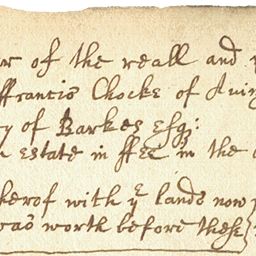 of the reall and
ffrancis Chocke of Avin
of Barkes Esqr:
estate in ffee in the
with ye lands now
was worth before these